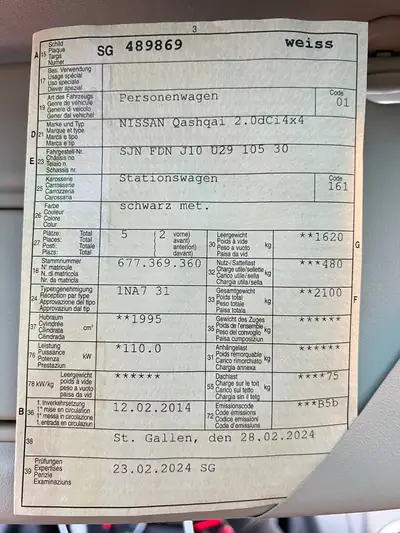 3
A 15 Schild Plaque Targa Numer SG 489869 weiss
17 Bes. Verwendung Usage spécial Uso speciale Diever spezial
19 Art des Fahrzeugs Genre de véhicule Genere di veicolo Gener dal vehichel Personenwagen Code 01
D 21 Marke und Typ Marque et type Marca e tipo Marca e tip NISSAN Qashqai 2.0dCi4x4
E 23 Fahrgestell-Nr. Châssis no Telaio n. Schassis nr. SJN FDN J10 U29 105 30
25 Karosserie Carrosserie Carrozzeria Carossaria Stationswagen Code 161
26 Farbe Couleur Colore Colur schwarz met.
27 Plätze: Total Places: Total Posti: Totale Plazs: Total 5 (2 vorne) avant) anteriori) davant)
30 Leergewicht Poids à vide Peso a vuoto Paisa da vid kg **1620 G
18 Stammnummer N° matricule N. di matricola Nr. da matricla 677.369.360
32 Nutz-/Sattellast Charge utile/sellette Carico utile/sella Chargia utila/sella kg ***480
24 Typengenehmigung Réception par type Approvazione del tipo Approvaziun dal tip 1NA7 31
33 Gesamtgewicht Poids total Peso totale Paisa totala kg **2100 F
37 Hubraum Cylindrée Cilindrata Cilindrada cm³ **1995
35 Gewicht des Zuges Poids de l'ensemble Peso del convoglio Paisa cumposiziun kg ******
76 Leistung Puissance Potenza Prestaziun kW *110.0
31 Anhängelast Poids remorquable Carico rimorchiato Chargia annexa kg ******
78 kW/kg Leergewicht poids à vide peso a vuoto paisa da vid ******
55 Dachlast Charge sur le toit Carico sul tetto Chargia sin il tetg kg ****75
B 36 1. Inverkehrsetzung 1re mise en circulation 1a messa in circolazione 1. entrada en circulaziun 12.02.2014
72 Emissionscode Code émissions Codice emissioni Code d'emissiuns ***B5b
38 St. Gallen, den 28.02.2024
39 Prüfungen Expertises Perizie Examinaziuns 23.02.2024 SG